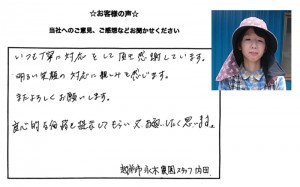 ☆お客様の声☆
当社へのご意見、ご感想などお聞かせください
いつも丁寧に対応をして頂き感謝しています。
明るい笑顔の対応に親しみを感じます。
またよろしくお願いします。
良心的な価格を提示してもらい、又お願いしたく思います。
農園スタッフ 内田